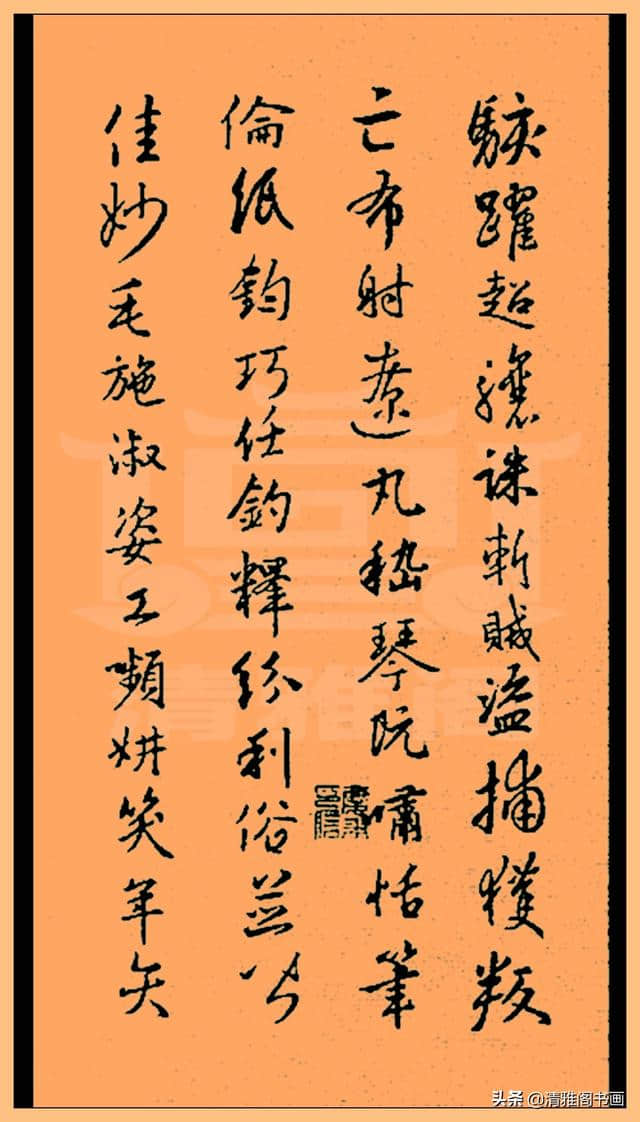 駭躍超驤誅斬賊盜捕獲叛
亡布射遼丸嵇琴阮嘯恬筆
倫紙鈞巧任釣釋紛利俗並皆
佳妙毛施淑姿工嚬妍笑年矢
清雅阁
头条 @清雅阁书画